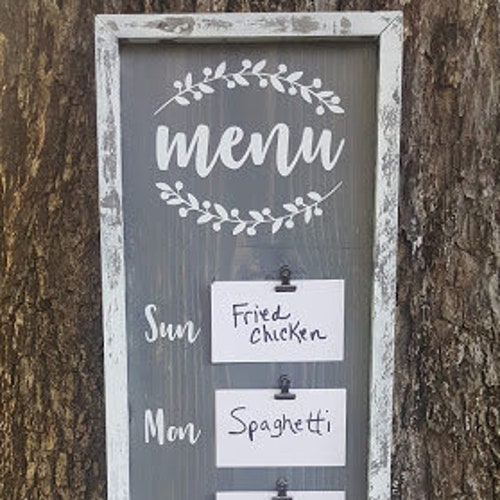 menu
Sun
Fried
chicken
Mon
Spaghetti